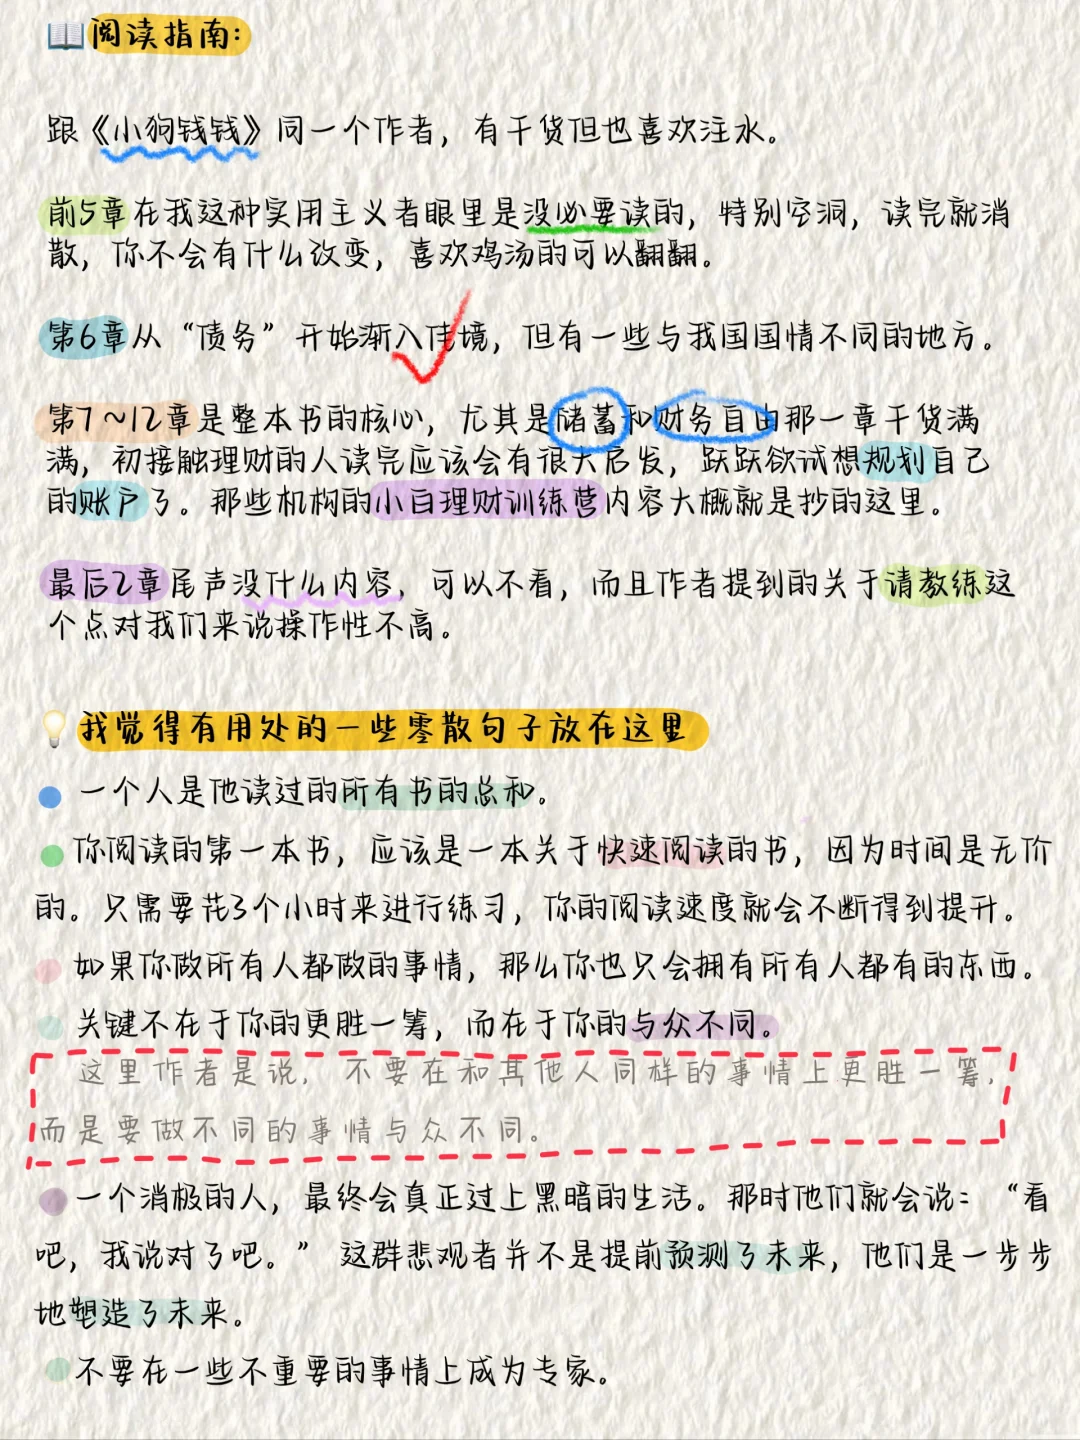 阅读指南:
跟《小狗钱钱》同一个作者，有干货但也喜欢注水。
前5章在我这种实用主义者眼里是没必要读的，特别空洞，读完就消
散，你不会有什么改变，喜欢鸡汤的可以翻翻。
第6章从“债务”开始渐入佳境，但有一些与我国国情不同的地方。
第7~12章是整本书的核心，尤其是储蓄和财务自由那一章干货满
满，初接触理财的人读完应该会有很大启发，跃跃欲试想规划自己
的账户了。那些机构的小白理财训练营内容大概就是抄的这里。
最后2章尾声没什么内容，可以不看，而且作者提到的关于请教练这
个点对我们来说操作性不高。
我觉得有用处的一些零散句子放在这里
一个人是他读过的所有书的总和。
你阅读的第一本书，应该是一本关于快速阅读的书，因为时间是无价
的。只需要花3个小时来进行练习，你的阅读速度就会不断得到提升。
如果你做所有人都做的事情，那么你也只会拥有所有人都有的东西。
关键不在于你的更胜一筹，而在于你的与众不同。
这里作者是说，不要在和其他人同样的事情上更胜一筹，
而是要做不同的事情与众不同。
一个消极的人，最终会真正过上黑暗的生活。那时他们就会说：“看
吧，我说对了吧。” 这群悲观者并不是提前预测了未来，他们是一步步
地塑造了未来。
不要在一些不重要的事情上成为专家。